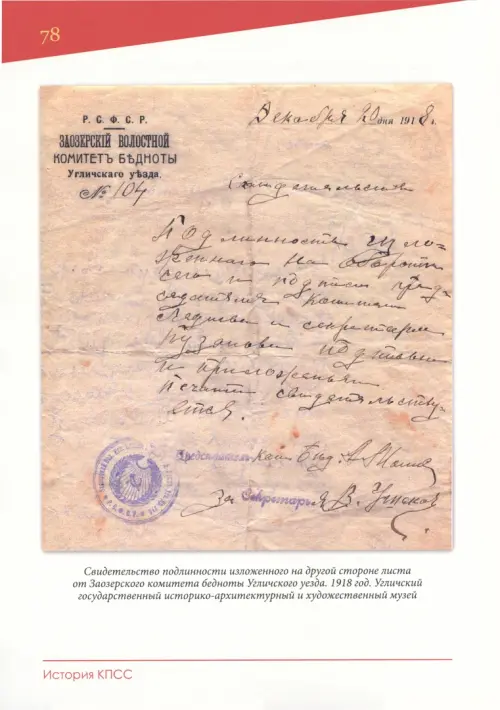 78
Р. С. Ф. С. Р.
ЗАОЗЕРСКІЙ ВОЛОСТНОЙ
КОМИТЕТЪ БѢДНОТЫ
Угличскаго уѣзда.
№ 104
Декабря 20 дня 1918 г.
Свидетельство
Подлинность изло-
женнаго на обороте
сего и подписи пред-
седателя
и секретаря
Пузанова
и приложеньем
печати свидетельству-
ется.
Председатель Ком. Бед.
За Секретарь
Свидетельство подлинности изложенного на другой стороне листа
от Заозерского комитета бедноты Угличского уезда. 1918 год. Угличский
государственный историко-архитектурный и художественный музей
История КПСС